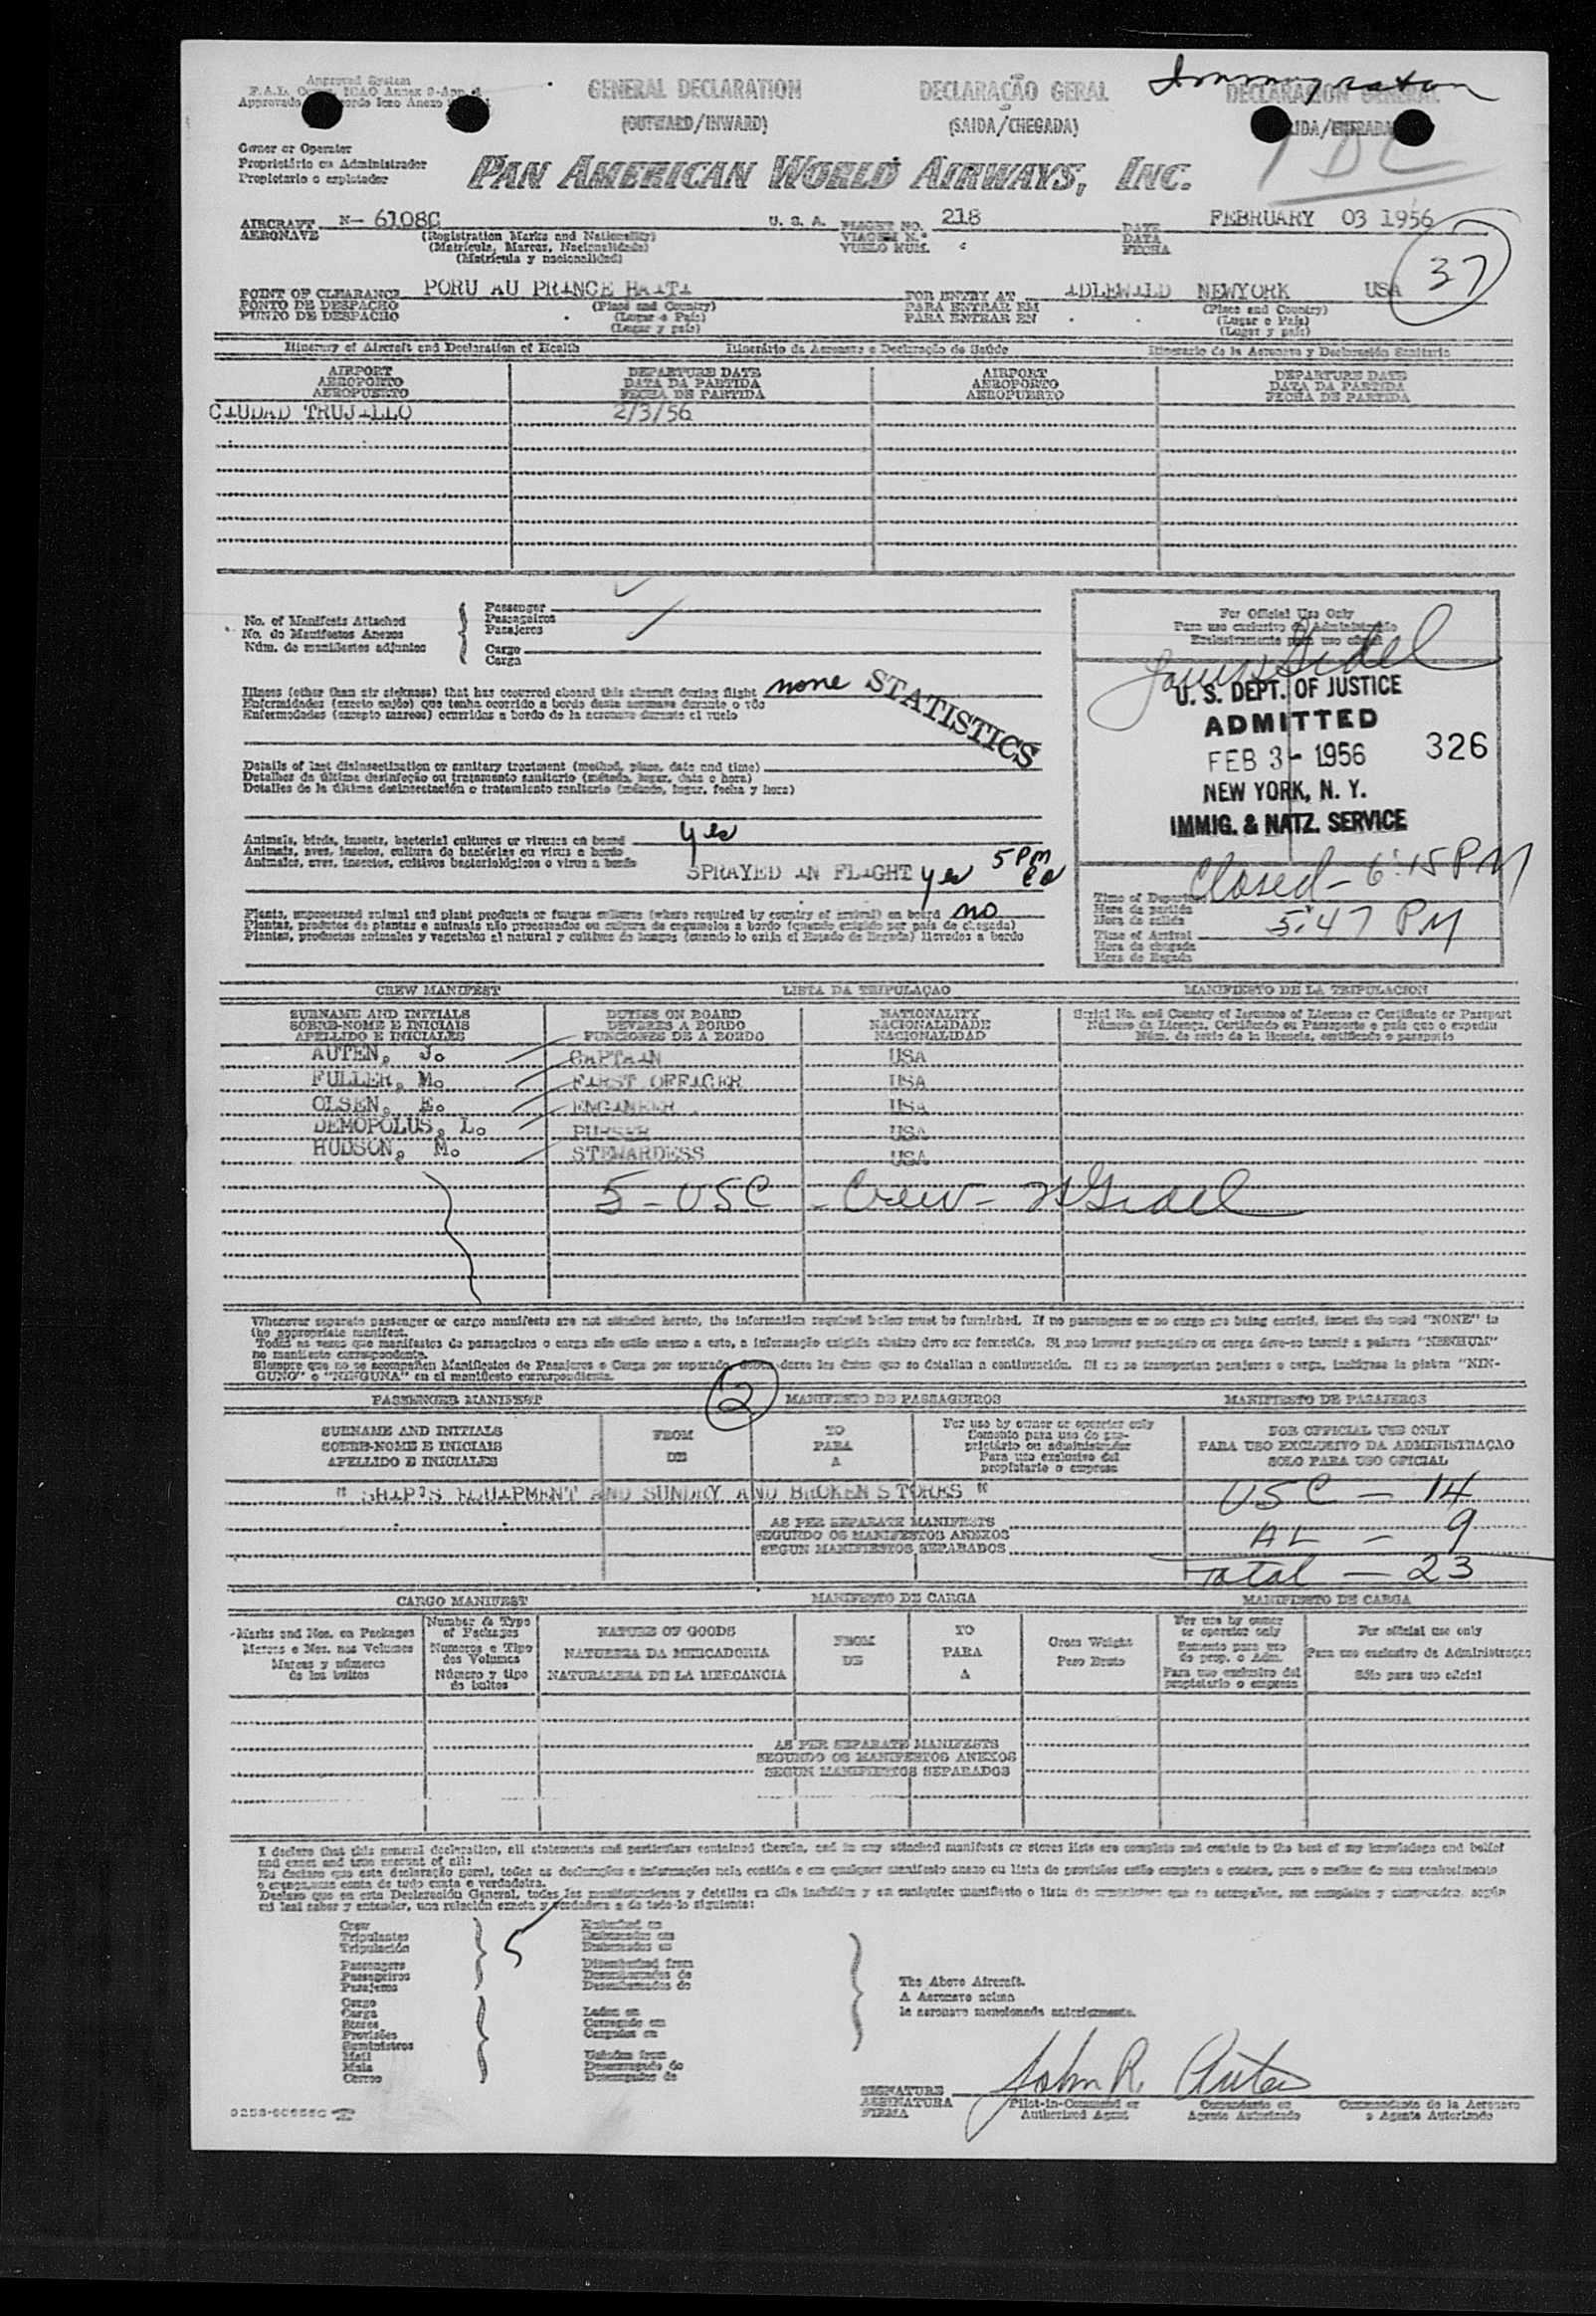 Approved System
GENERAL DECLARATION
DECLARAÇÃO GERAL
DECLARACION GENERAL
Immigration
(OUTWARD/INWARD)
(SAIDA/CHEGADA)
Owner or Operator
Proprietário ou Administrador
Propietario o explotador
PAN AMERICAN WORLD AIRWAYS, INC.
AIRCRAFT N- 6108C U. S. A. FLIGHT NO. 218 DATE FEBRUARY 03 1956
AERONAVE (Registration Marks and Nationality) VIAGEM N.º DATA
(Matrícula, Marcas, Nacionalidade) VUELO NUM. FECHA
(Matrícula y nacionalidad)
37
POINT OF CLEARANCE PORU AU PRINCE HAITI FOR ENTRY AT IDLEWILD NEWYORK USA
PONTO DE DESPACHO (Place and Country) PARA ENTRAR EM (Place and Country)
PUNTO DE DESPACHO (Lugar e País) PARA ENTRAR EN (Lugar e País)
(Lugar y país) (Lugar y país)
Itinerary of Aircraft and Declaration of Health Itinerário da Aeronave e Declaração de Saúde Itinerario de la Aeronave y Declaración Sanitaria
AIRPORT DEPARTURE DATE AIRPORT DEPARTURE DATE
AEROPORTO DATA DA PARTIDA AEROPORTO DATA DA PARTIDA
AEROPUERTO FECHA DE PARTIDA AEROPUERTO FECHA DE PARTIDA
CIUDAD TRUJILLO 2/3/56
No. of Manifests Attached
No. de Manifestos Anexos
Núm. de manifiestos adjuntos
Passenger
Passageiros
Pasajeros
Cargo
Carga
For Official Use Only
Para uso exclusivo da Administração
Exclusivamente para uso oficial
Illness (other than air sickness) that has occurred aboard this aircraft during flight none
Enfermidades (exceto enjôo) que tenha ocorrido a bordo desta aeronave durante o vôo
Enfermedades (excepto mareos) ocurridas a bordo de la aeronave durante el vuelo
STATISTICS
U. S. DEPT. OF JUSTICE
ADMITTED
FEB 3 - 1956 326
NEW YORK, N. Y.
IMMIG. & NATZ. SERVICE
Details of last disinsectization or sanitary treatment (method, place, date and time)
Detalhes da última desinfeção ou tratamento sanitario (método, lugar, data e hora)
Detalles de la última desinsectación o tratamiento sanitario (método, lugar, fecha y hora)
Animals, birds, insects, bacterial cultures or viruses on board yes
Animais, aves, insetos, cultura de bactérias ou virus a bordo
Animales, aves, insectos, cultivos bacteriológicos o virus a bordo
SPRAYED IN FLIGHT yes 5 PM
Closed - 6:15 PM
Time of Departure
Hora da partida
Hora de salida
Time of Arrival 5:47 PM
Hora da chegada
Hora de llegada
Plants, unprocessed animal and plant products or fungus cultures (where required by country of arrival) on board no
Plantas, produtos de plantas e animais não processados ou cultura de cogumelos a bordo (quando exigido por país de chegada)
Plantas, productos animales y vegetales al natural y cultivos de hongos (cuando lo exija el Estado de llegada) llevados a bordo
CREW MANIFEST LISTA DA TRIPULAÇAO MANIFIESTO DE LA TRIPULACION
SURNAME AND INITIALS DUTIES ON BOARD NATIONALITY Serial No. and Country of Issuance of License or Certificate or Passport
SOBRE-NOME E INICIAIS DEVERES A BORDO NACIONALIDADE Número da Licença, Certificado ou Passaporte e país que o expediu
APELLIDO E INICIALES FUNCIONES DE A BORDO NACIONALIDAD Núm. de serie de la licencia, certificado o pasaporte
AUTEN, J. CAPTAIN USA
FULLER, M. FIRST OFFICER USA
OLSEN, E. ENGINEER USA
DEMOPOLUS, L. PURSER USA
HUDSON, M. STEWARDESS USA
5 - USC - Crew -
Whenever separate passenger or cargo manifests are not attached hereto, the information required below must be furnished. If no passengers or no cargo are being carried, insert the word "NONE" in
the appropriate manifest.
Todas as vezes que manifestos de passageiros o carga não estão anexo a esto, a informação exigida abaixo deve ser fornecida. Si não houver passageiro ou carga deve-se inserir a palavra "NENHUM"
no manifesto correspondente.
Siempre que no se acompañen Manifiestos de Pasajeros o Carga por separado, deben darse los datos que se detallan a continuación. Si no se transportan pasajeros o carga, inclúyase la palabra "NIN-
GUNO" o "NINGUNA" en el manifiesto correspondiente.
2
PASSENGER MANIFEST MANIFESTO DE PASSAGEIROS MANIFIESTO DE PASAJEROS
SURNAME AND INITIALS FROM TO For use by owner or operator only FOR OFFICIAL USE ONLY
SOBRE-NOME E INICIAIS DE PARA Somente para uso do pro- PARA USO EXCLUSIVO DA ADMINISTRAÇAO
APELLIDO E INICIALES A prietário ou administrador SOLO PARA USO OFICIAL
Para uso exclusivo del
propietario o empresa
" SHIP'S EQUIPMENT AND SUNDRY AND BROKEN STORES " USC - 14
AS PER SEPARATE MANIFESTS AL - 9
SEGUNDO OS MANIFESTOS ANEXOS
SEGUN MANIFIESTOS SEPARADOS Total - 23
CARGO MANIFEST MANIFESTO DE CARGA MANIFIESTO DE CARGA
Marks and Nos. on Packages Number & Type of Packages NATURE OF GOODS FROM TO Gross Weight For use by owner or operator only For official use only
Marcas e Nos. nos Volumes Numeros e Tipo dos Volumes NATUREZA DA MERCADORIA DE PARA Peso Bruto Somente para uso do prop. o Adm. Para uso exclusivo de Administraçao
Marcas y números de los bultos Número y tipo de bultos NATURALEZA DE LA MERCANCIA A Para uso exclusivo del propietario o empresa Sólo para uso oficial
AS PER SEPARATE MANIFESTS
SEGUNDO OS MANIFESTOS ANEXOS
SEGUN MANIFIESTOS SEPARADOS
I declare that this general declaration, all statements and particulars contained therein, and in any attached manifests or stores lists are complete and contain to the best of my knowledge and belief
and exact and true account of all:
Crew
Tripulantes
Tripulación
5
Passengers
Passageiros
Pasajeros
Cargo
Carga
Stores
Provisões
Suministros
Mail
Mala
Correo
Embarked on
Embarcados em
Embarcados en
Disembarked from
Desembarcados de
Desembarcados de
Laden on
Carregado em
Cargados en
Unladen from
Descarregado do
Descargados de
The Above Aircraft.
A Aeronave acima
la aeronave mencionada anteriormente.
SIGNATURE John R. Auten
ASSINATURA Pilot-in-Command or Comandante ou Comandante de la Aeronave
FIRMA Authorized Agent Agente Autorizado o Agente Autorizado